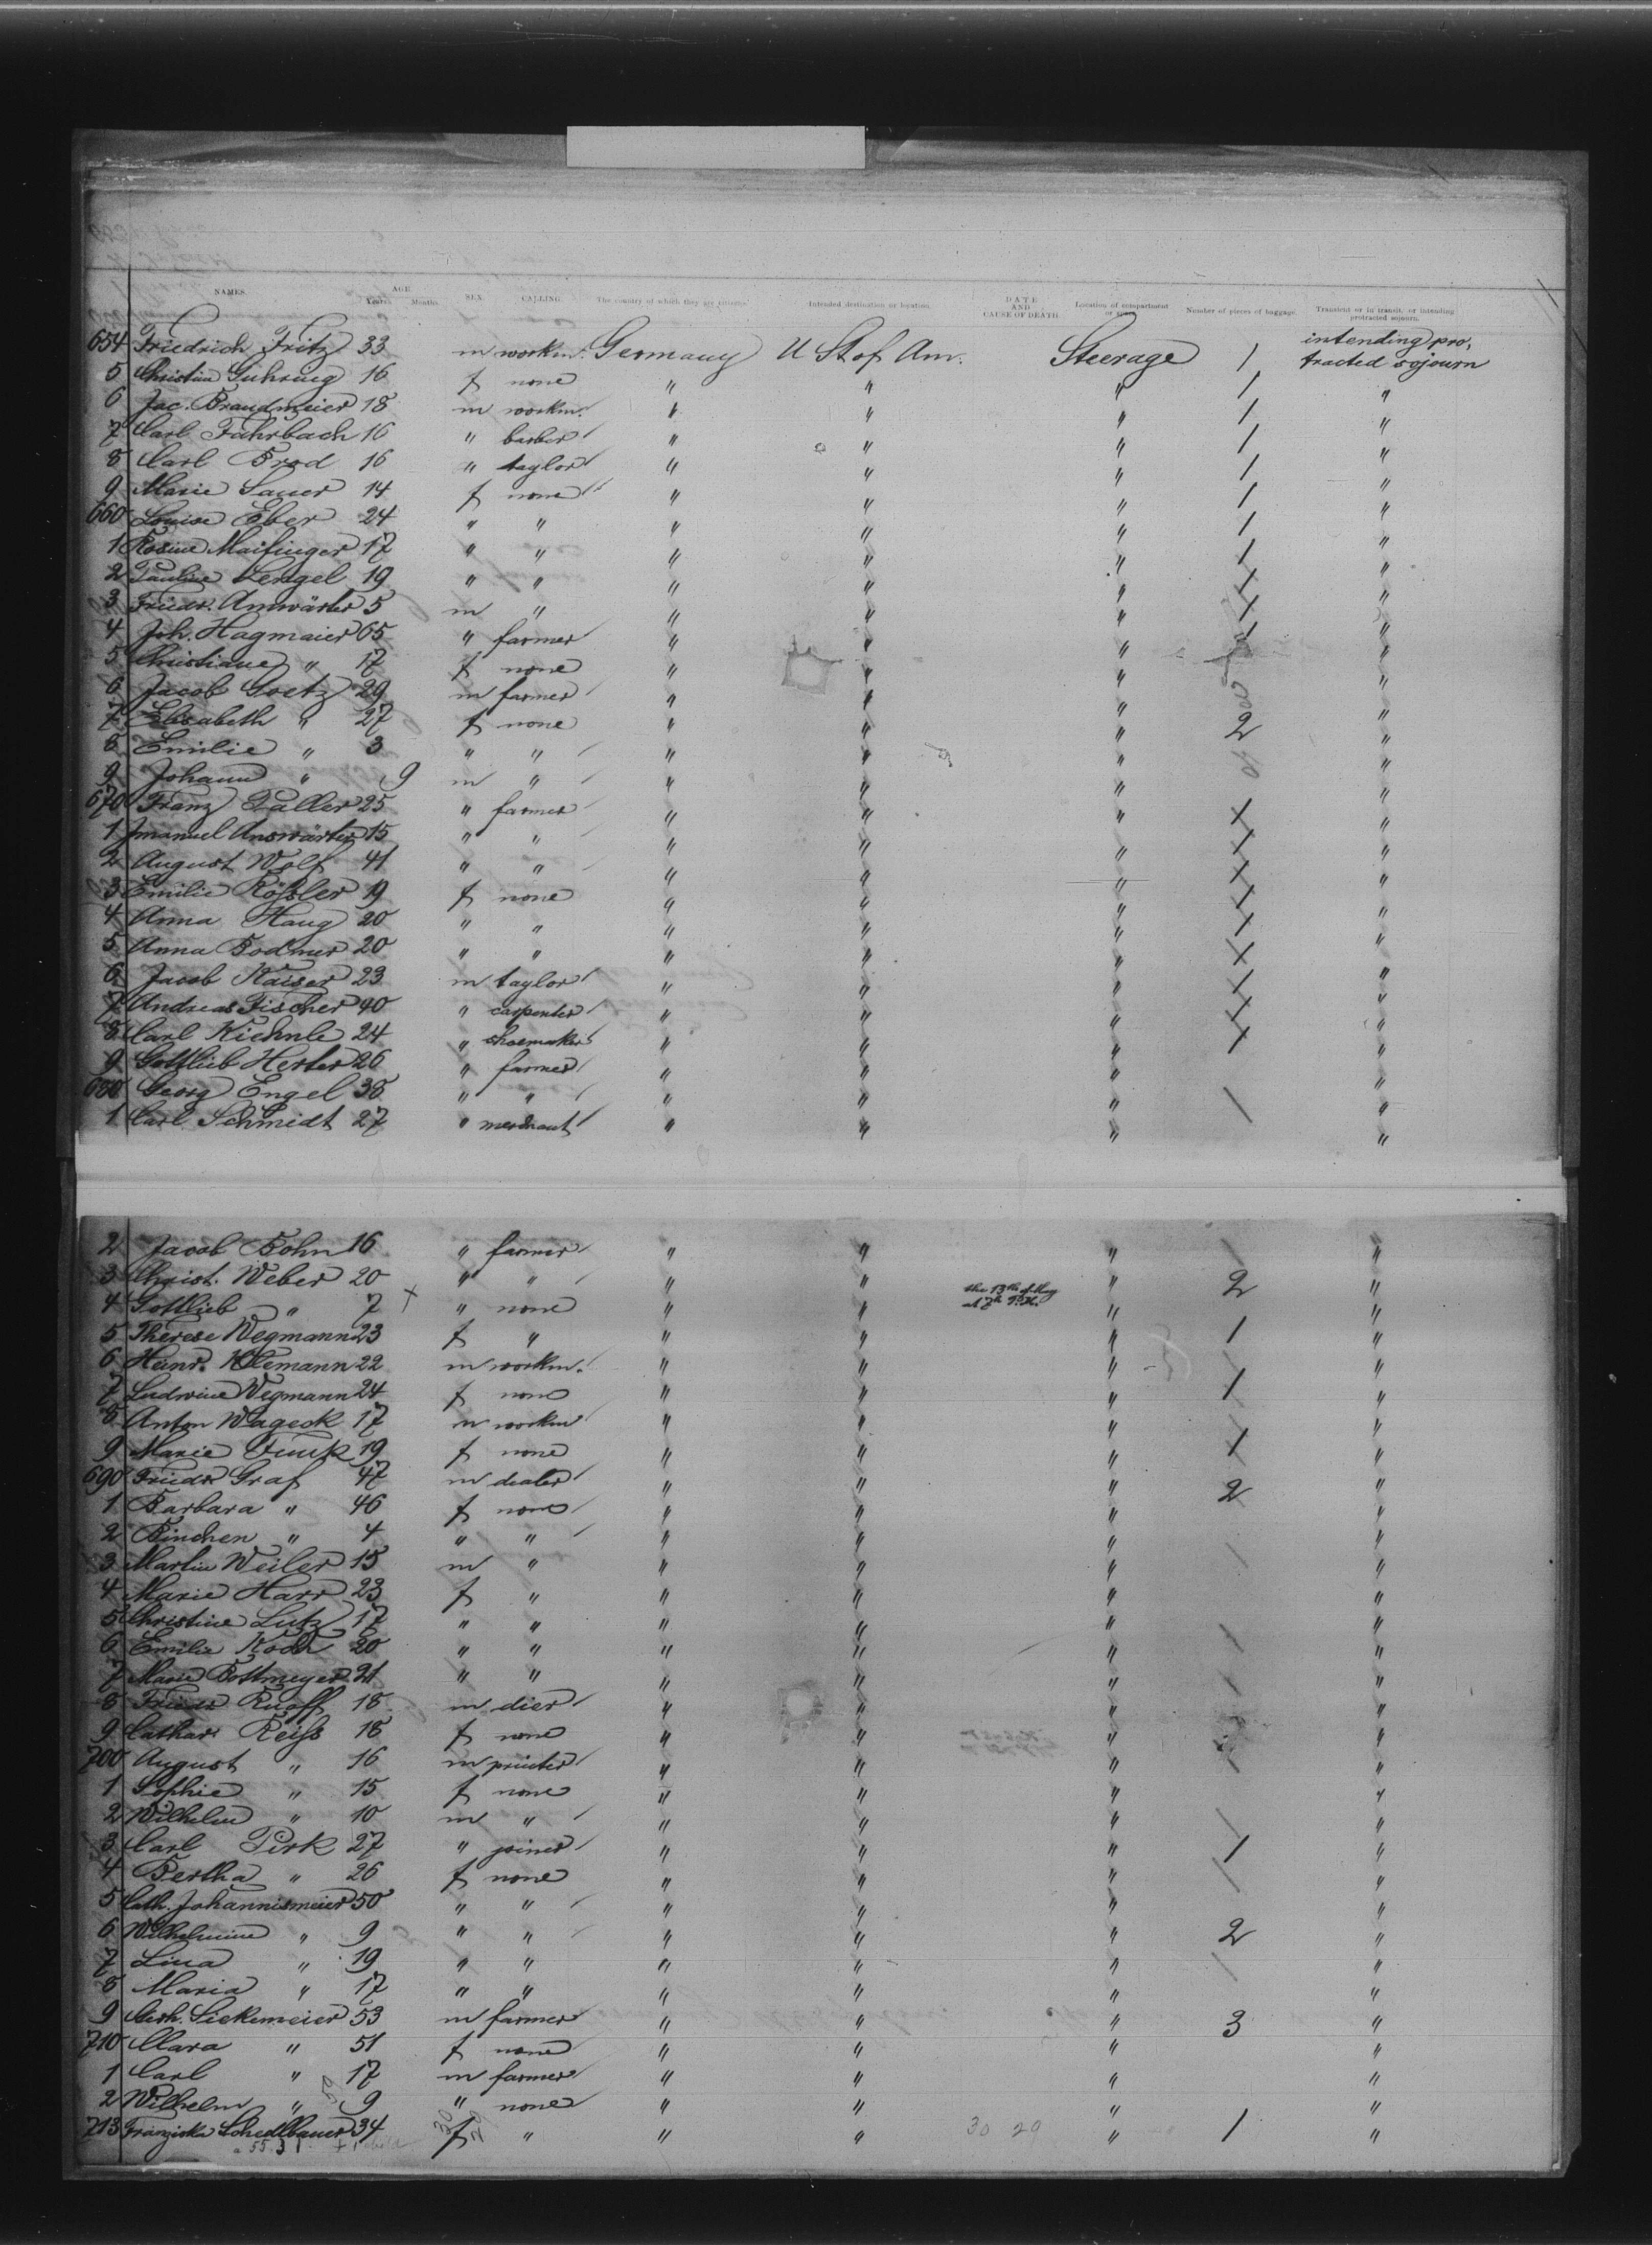 NAMES. AGE Years. Months. SEX. CALLING. The country of which they are citizens. Intended destination or location. DATE AND CAUSE OF DEATH. Location of compartment or space. Number of pieces of baggage. Transient or in transit, or intending protracted sojourn.
654 Friedrich Fritz 33 m workm. Germany U St of Am. Steerage 1 intending protracted sojourn
5 Christine Guhring 16 f none " " " 1 "
6 Jac. Brandmeier 18 m workm. " " " 1 "
7 Carl Fahrbach 16 " barber " " " 1 "
8 Carl Brod 16 " taylor " " " 1 "
9 Marie Sauer 14 f none " " " 1 "
660 Louise Eber 24 " " " " " 1 "
1 Rosine Maifinger 17 " " " " " 1 "
2 Pauline Lengel 19 " " " " " 1 "
3 Friedr. Anwärter 5 m " " " " 1 "
4 Joh. Hagmaier 65 " farmer " " " "
5 Christiane " 17 f none " " " "
6 Jacob Goetz 29 m farmer " " " "
7 Elisabeth " 27 f none " " " 2 "
8 Emilie " 3 " " " " " "
9 Johann " 9 m " " " " "
670 Franz Paller 25 " farmer " " " 1 "
1 Imanuel Answärter 15 " " " " " 1 "
2 August Wolf 41 " " " " " 1 "
3 Emilie Rößler 19 f none " " " 1 "
4 Anna Haug 20 " " " " " 1 "
5 Anna Bodmer 20 " " " " " 1 "
6 Jacob Kaiser 23 m taylor " " " 1 "
7 Andreas Fischer 40 " carpenter " " " 1 "
8 Carl Kiehnle 24 " shoemaker " " " 1 "
9 Gottlieb Herter 26 " farmer " " " "
680 Georg Engel 38 " " " " " 1 "
1 Carl Schmidt 27 " merchant " " " "
2 Jacob Bohn 16 " farmer " " " "
3 Christ. Weber 20 " " " " " 2 "
4 Gottlieb " 7 + " none " " the 13th of May at 7h P.M. " "
5 Therese Wegmann 23 f " " " " 1 "
6 Heinr. Klemann 22 m workm. " " " "
7 Ludwine Wegmann 24 f none " " " 1 "
8 Anton Wageck 17 m workm " " " "
9 Marie Funk 19 f none " " " 1 "
690 Friedr Graf 47 m dealer " " " 2 "
1 Barbara " 46 f none " " " "
2 Binchen " 4 " " " " " "
3 Martin Weiler 15 m " " " " "
4 Marie Harr 23 f " " " " "
5 Christine Lutz 17 " " " " " "
6 Emilie Koch 20 " " " " " "
7 Marie Bottmeyer 21 " " " " " "
8 Friedr Ruoff 18 m dier " " " "
9 Cathar. Reiss 18 f none " " " "
700 August " 16 m printer " " " "
1 Sophie " 15 f none " " " "
2 Wilhelm " 10 m " " " " "
3 Carl Pirk 27 " joiner " " " 1 "
4 Bertha " 26 f none " " " "
5 Cath. Johannismeier 50 " " " " " "
6 Wilhelmine " 9 " " " " " 2 "
7 Lina " 19 " " " " " "
8 Maria " 17 " " " " " "
9 Gerh. Siekemeier 53 m farmer " " " 3 "
710 Clara " 51 f none " " " "
1 Carl " 17 m farmer " " " "
2 Wilhelm " 9 " none " " " "
713 Franziska Schedlbauer 34 f " " " 30 29 " 1 "